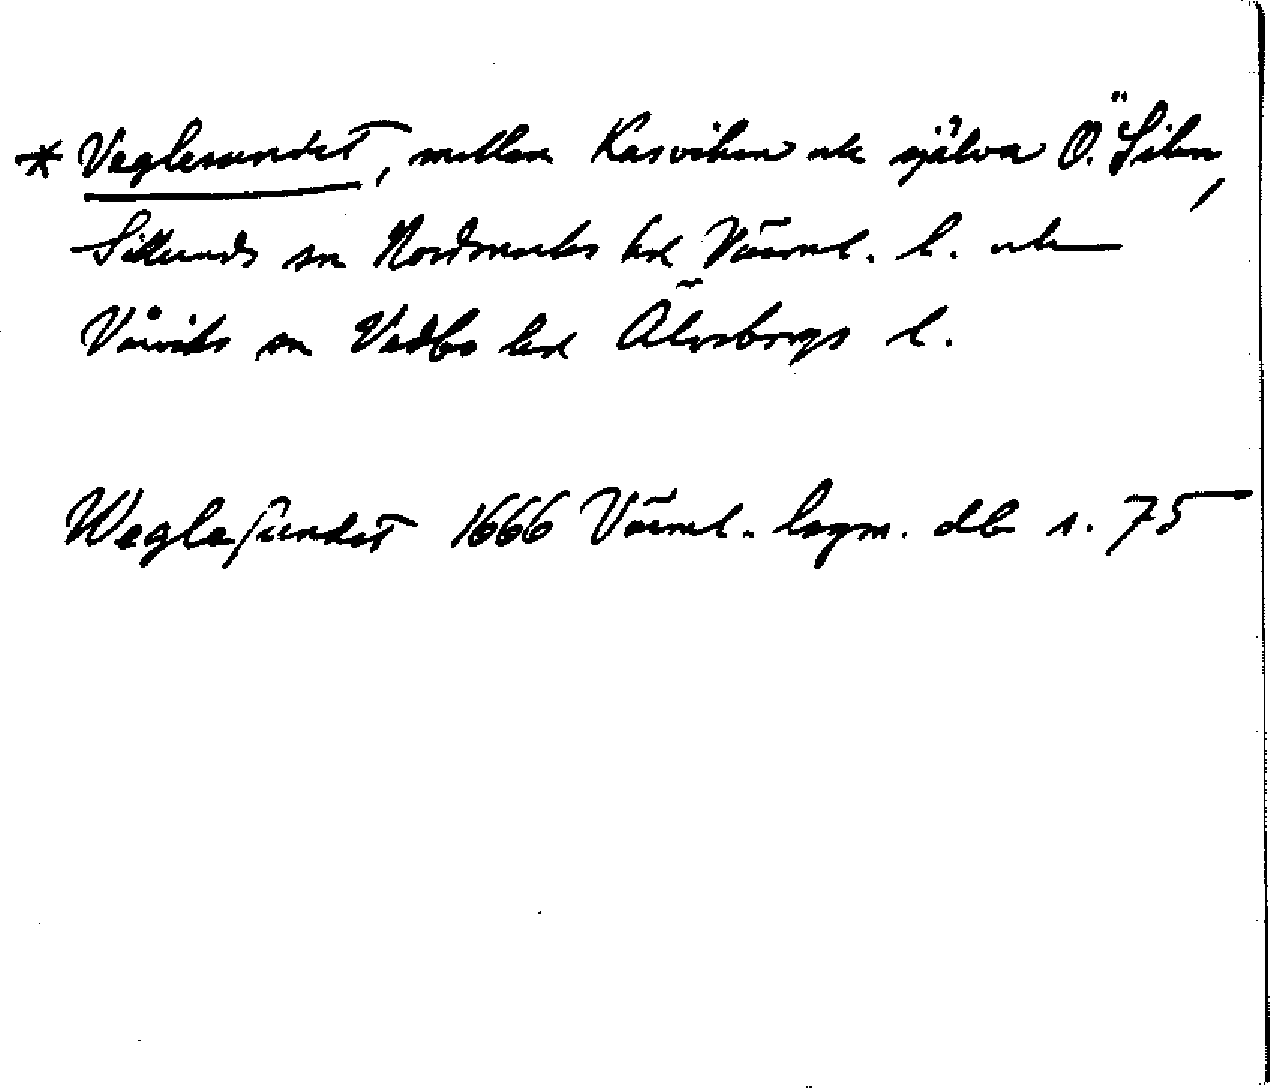 * Veglesundet, mellan Kasviken och själva Ö. Silen,
Silleruds sn Nordmarks hd Värml. l. och
Vårviks sn Vedbo hd Älvsborgs l.
Weglesundet 1666 Värml. lagm. db s. 75